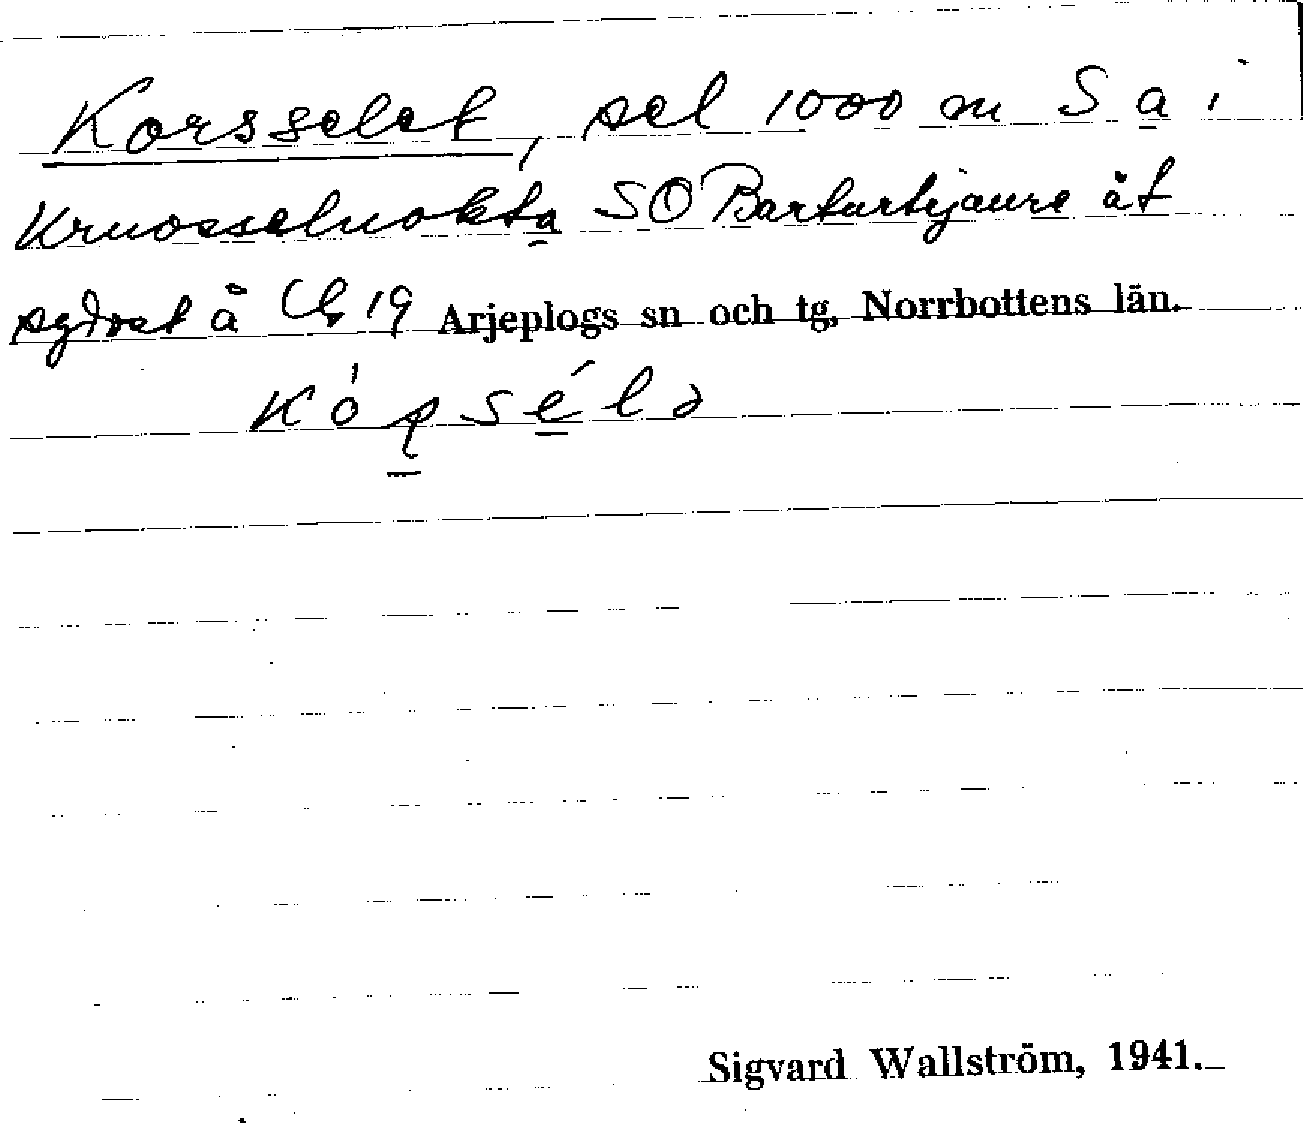 Korsselet, sel 1000 m S a i
Kruosseluokta SO Barturtjaure åt
sydost å Cb 19 Arjeplogs sn och tg, Norrbottens län.
Sigvard Wallström, 1941.